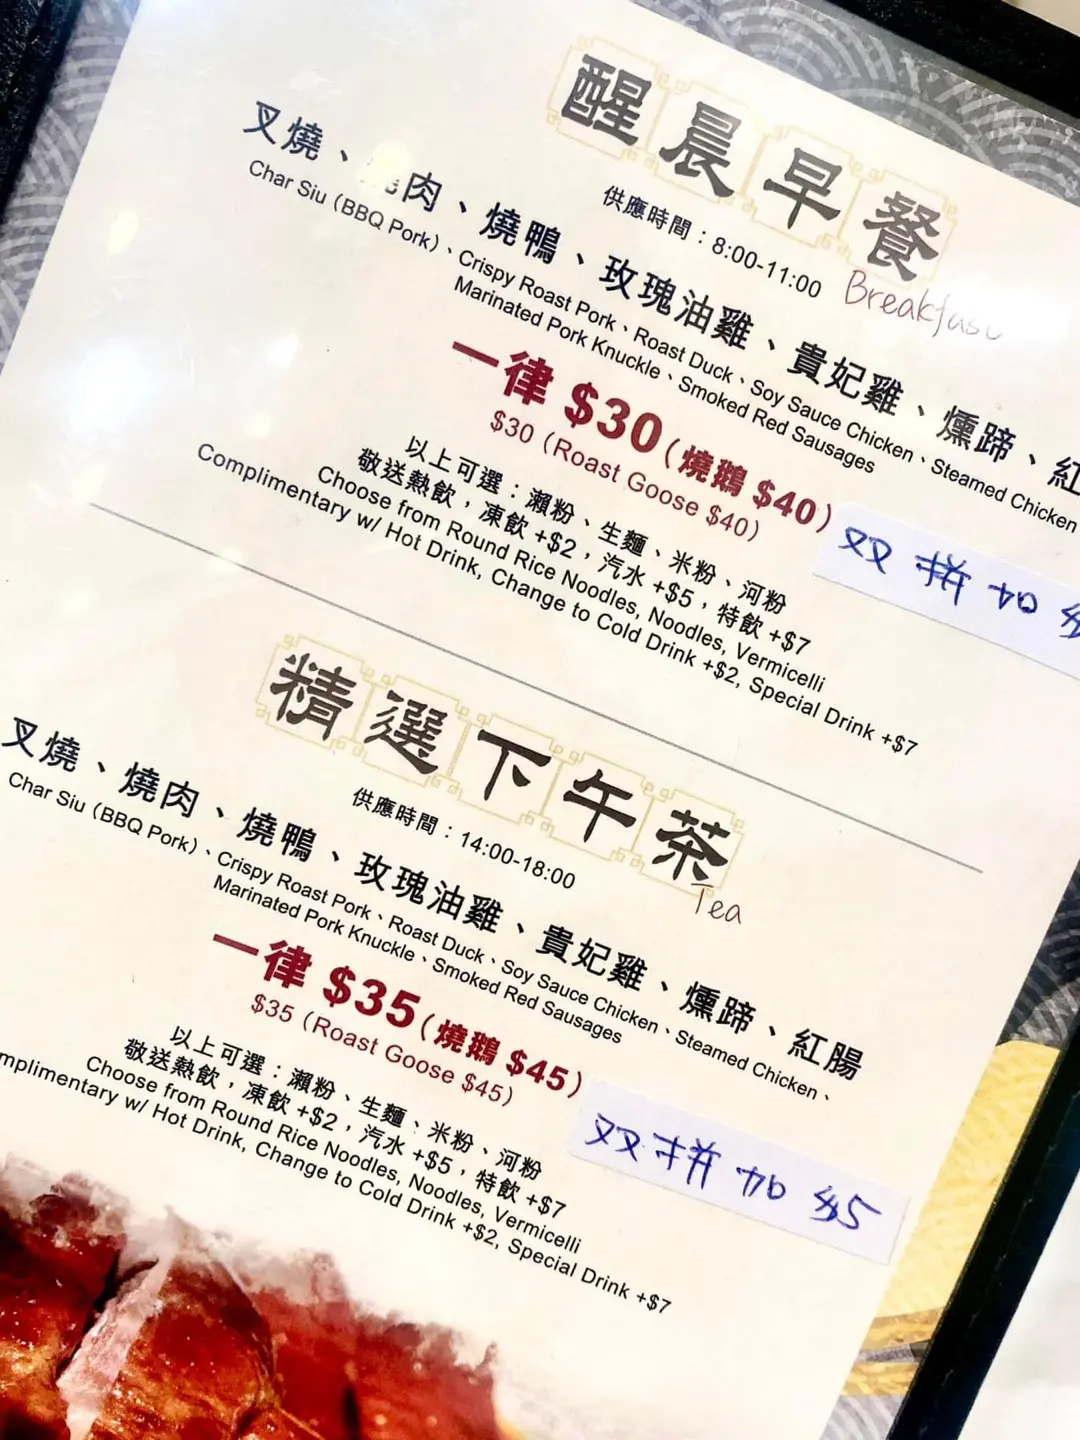 醒晨早餐
供應時間：8:00-11:00
Breakfast
叉燒、燒肉、燒鴨、玫瑰油雞、貴妃雞、燻蹄、紅
Char Siu (BBQ Pork)、Crispy Roast Pork、Roast Duck、Soy Sauce Chicken、Steamed Chicken
Marinated Pork Knuckle、Smoked Red Sausages
一律 $30(燒鵝 $40)
$30 (Roast Goose $40)
双拼加
以上可選：瀨粉、生麵、米粉、河粉
敬送熱飲，凍飲 +$2，汽水 +$5，特飲 +$7
Choose from Round Rice Noodles, Noodles, Vermicelli
Complimentary w/ Hot Drink, Change to Cold Drink +$2, Special Drink +$7
精選下午茶
供應時間：14:00-18:00
Tea
叉燒、燒肉、燒鴨、玫瑰油雞、貴妃雞、燻蹄、紅腸
Char Siu (BBQ Pork)、Crispy Roast Pork、Roast Duck、Soy Sauce Chicken、Steamed Chicken、
Marinated Pork Knuckle、Smoked Red Sausages
一律 $35(燒鵝 $45)
$35 (Roast Goose $45)
双拼加 $5
以上可選：瀨粉、生麵、米粉、河粉
敬送熱飲，凍飲 +$2，汽水 +$5，特飲 +$7
Choose from Round Rice Noodles, Noodles, Vermicelli
mplimentary w/ Hot Drink, Change to Cold Drink +$2, Special Drink +$7